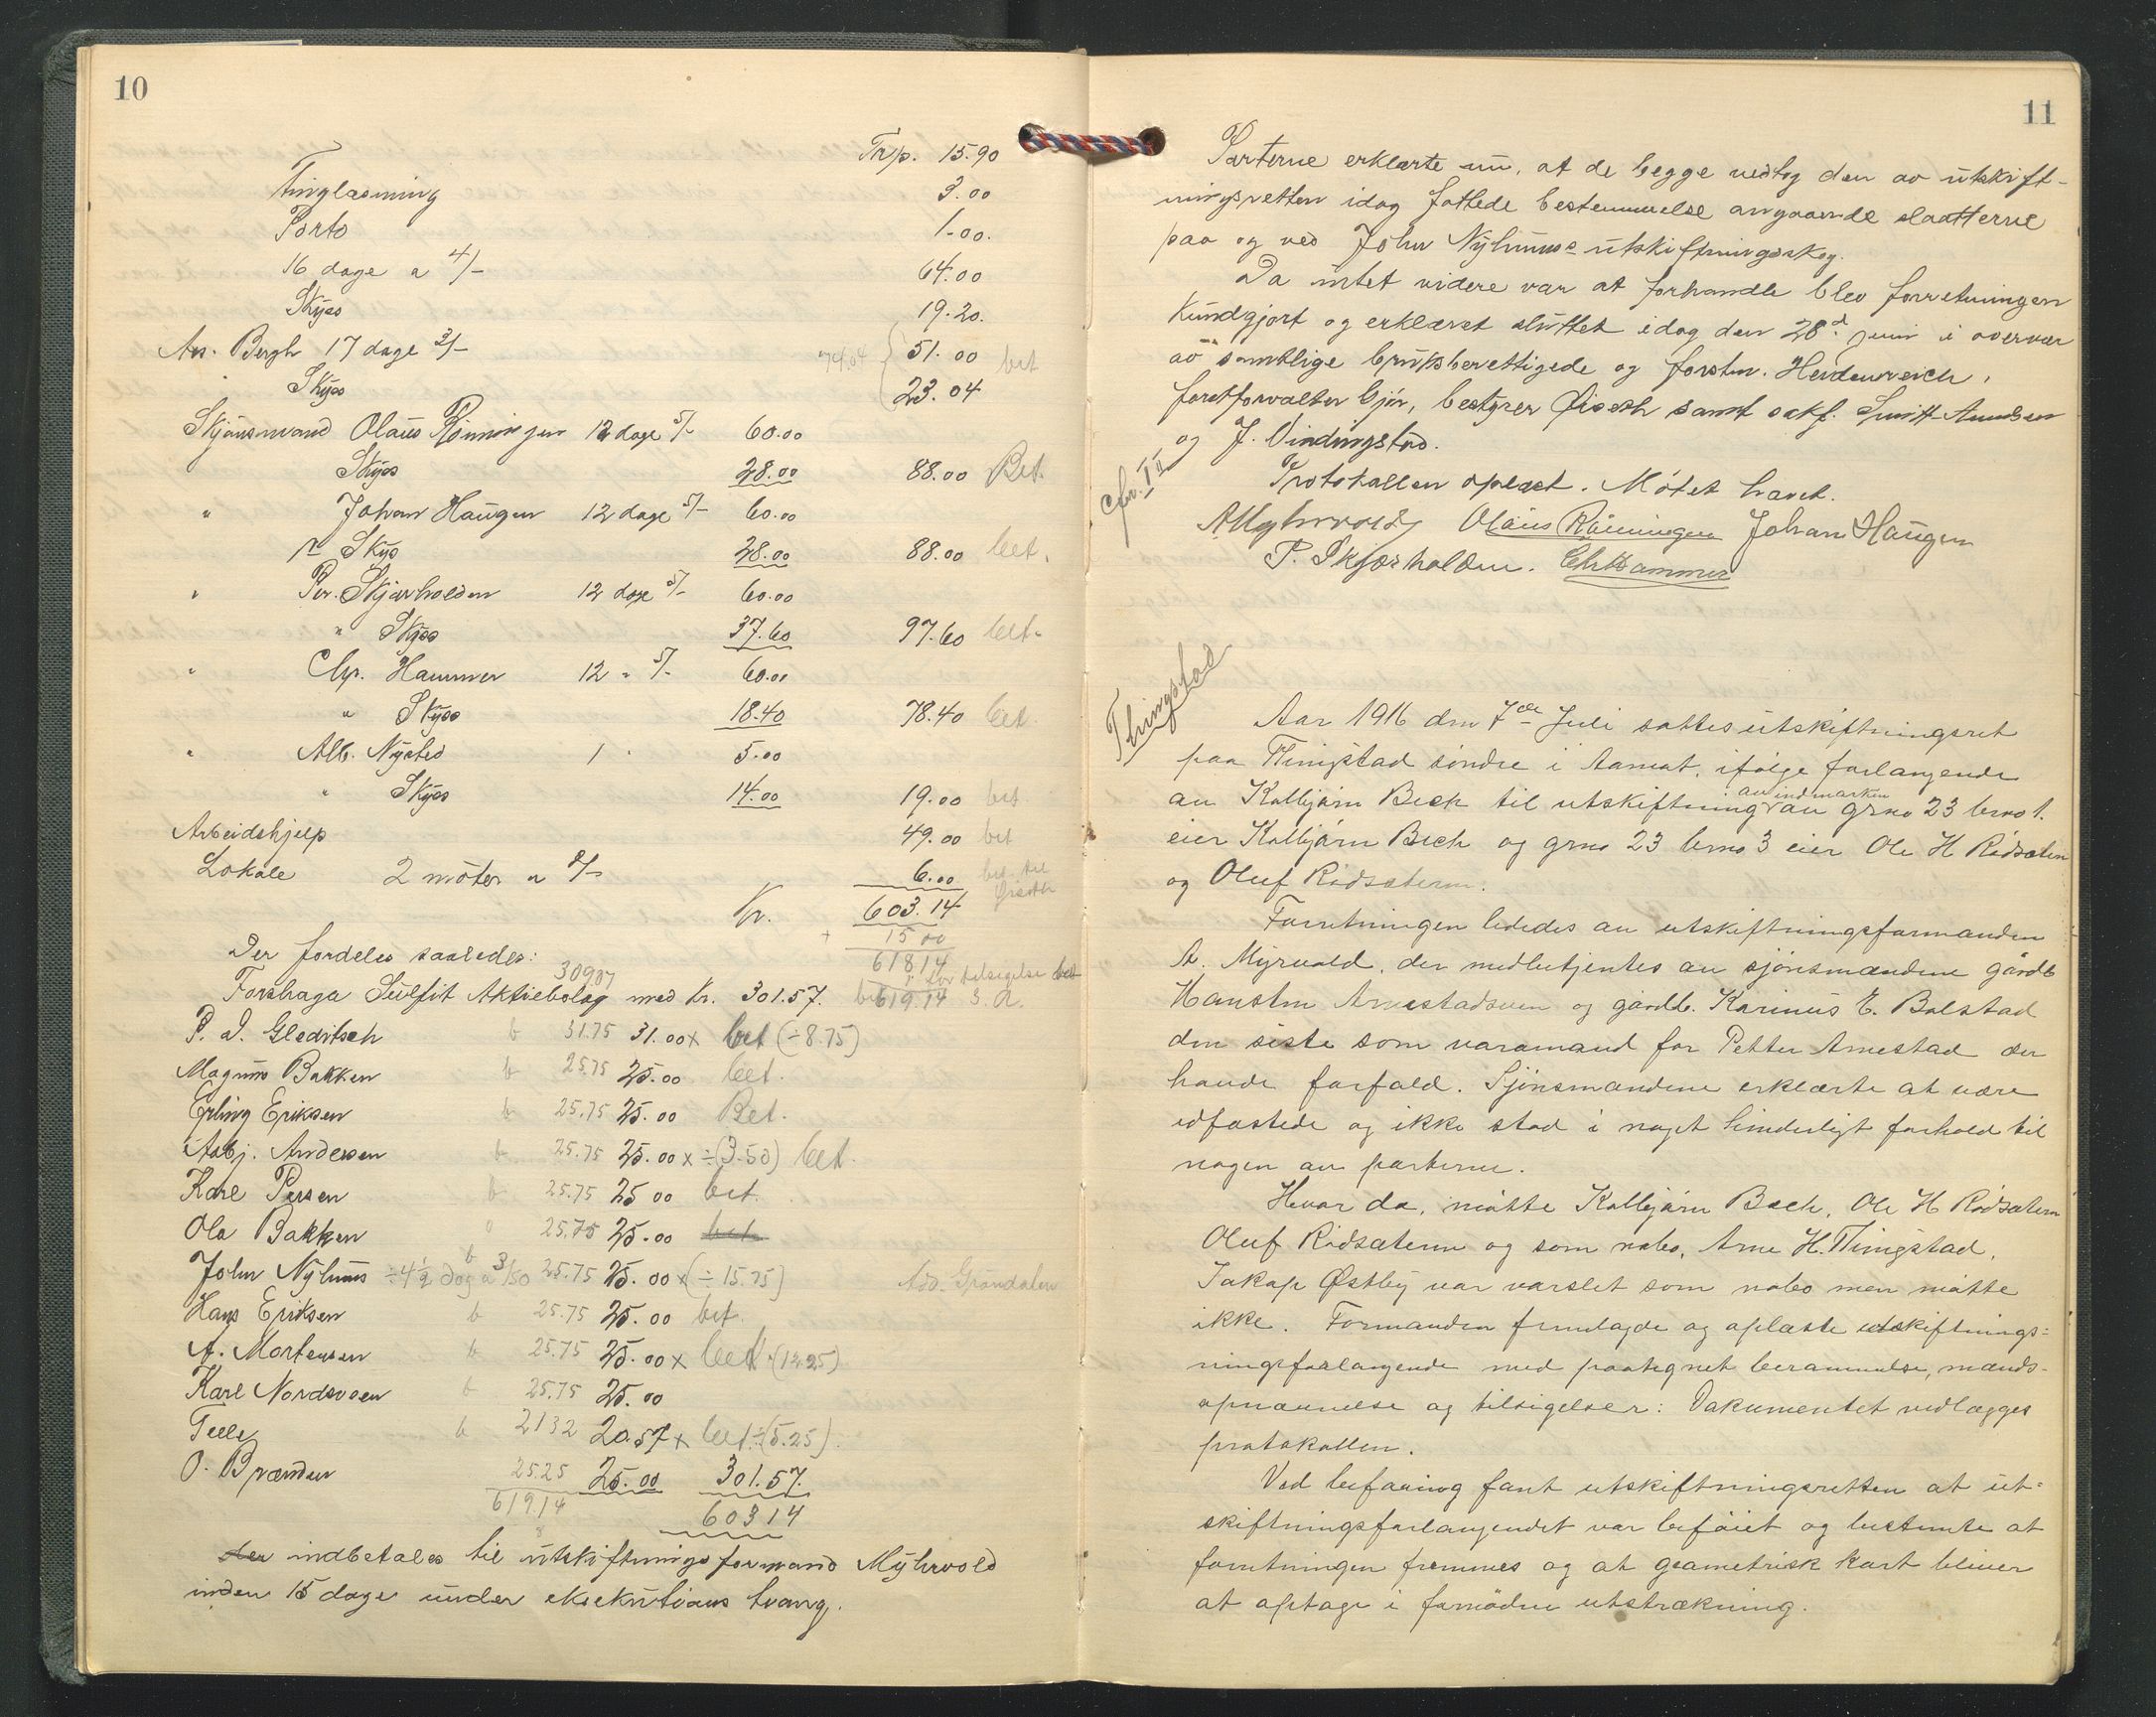 10
Trp. 15.90
Tinglæsning 3.00
Porto 1.00.
16 dage a 4/- 64.00
Skyss 19.20.
An. Bergh 17 dage 3/- 74.04 51.00 bet
" Skyss 23.04
Skjønsmand Olaus Rønningen 12 dage 5/- 60.00
Skyss 28.00 88.00 Bet.
" Johan Haugen 12 dage 5/- 60.00
Skyss 28.00 88.00 bet.
" Per. Skjærholden 12 dage 5/- 60.00
" Skyss 37.60 97.60 bet.
" Chr. Hammer 12 " 5/- 60.00
" Skyss 18.40 78.40 bet.
" Alb. Nysted 1 " 5.00
" Skyss 14.00 19.00 bet.
Arbeidshjelp 49.00 bet
Lokale 2 møter a 3/- 6.00 bet til
Øiseth
Kr. 603.14
+ 15 00
Der fordeles saaledes: 618.14
30907 for tilsigelse bet
Forshaga Sulfit Aktiebolag med Kr. 301.57. bet 619.14 S. A.
P. J. Gleditsch b 31.75 31.00 x bet (÷8.75)
Magnus Bakken b 25.75 25.00 bet.
Erling Eriksen b 25.75 25.00 Bet.
Asbj. Andersen b 25.75 25.00 x ÷(3.50) bet.
Karl Persen b 25.75 25 00 bet.
Ola Bakken o 25.75 25.00 bet
John Nyhuus ÷4½ dag a 3/50 b 25.75 25.00 x (÷15.75) Ado. Grøndalen
Hans Eriksen b 25.75 25.00 bet.
A. Mortensen b 25.75 25.00 x bet ÷(12.25)
Karl Nordsveen b 25.75 25.00
Telle b 2132 20.57 x bet ÷(5.25).
O. Brænden 25.25 25.00 301.57.
619.14 603 14
der indbetales til utskiftningsformand Myhrvold
inden 15 dage under eksekutions tvang.
11
Parterne erklærte nu, at de begge vedtog den av utskift-
ningsretten idag fattede bestemmelse angaaende slaatterne
paa og ved John Nyhuus utskiftningsskog.
Da intet videre var at forhandle blev forretningen
kundgjort og erklæret sluttet idag den 28d juni i overvær
av samtlige bruksberettigede og forstm. Heidenreich,
forstforvalter Gjør, bestyrer Øiseth samt sakf. Smitt Amundsen
og J. Vindingstad.
cfr. I II
Protokollen oplæst. Møtet hævet.
AMyhrvold Olaus Rønningen Johan Haugen
P. Skjærholden. ChrHammer
Thingstad
Aar 1916 den 7de Juli sattes utskiftningsret
paa Thingstad søndre i Aamot, ifølge forlangende
av indmarken
av Kolbjørn Bech til utskiftning av grno 23 brno 1.
eier Kolbjørn Bech og grno 23 brno 3 eier Ole H Rødsæteren
og Oluf Rødsæteren.
Forretningen lededes av utskiftningsformanden
A. Myrvold, der medbetjentes av sjønsmændene gårdb.
Hansten Arnestadsveen og gårdb. Karinus E. Bolstad
den siste som varamand for Petter Arnestad der
havde forfald. Sjønsmændene erklærte at være
edfæstede og ikke stod i noget hinderligt forhold til
nogen av parterne.
Hvor da, møtte Kolbjørn Bech, Ole H Rødsæteren
Oluf Rødsæteren og som nabo, Arne H. Thingstad.
Jakop Østby var varslet som nabo men møtte
ikke. Formanden fremlagde og oplæste utskiftnings=
ningsforlangende med paategnet berammelse, mands-
opnævnelse og tilsigelser: Dokumentet vedlægges
protokollen.
Ved befaring fant utskiftningsretten at ut=
skiftningsforlangendet var beføiet og bestemte at
forretningen fremmes og at geometrisk kart bliver
at optage i fornøden utstrækning.